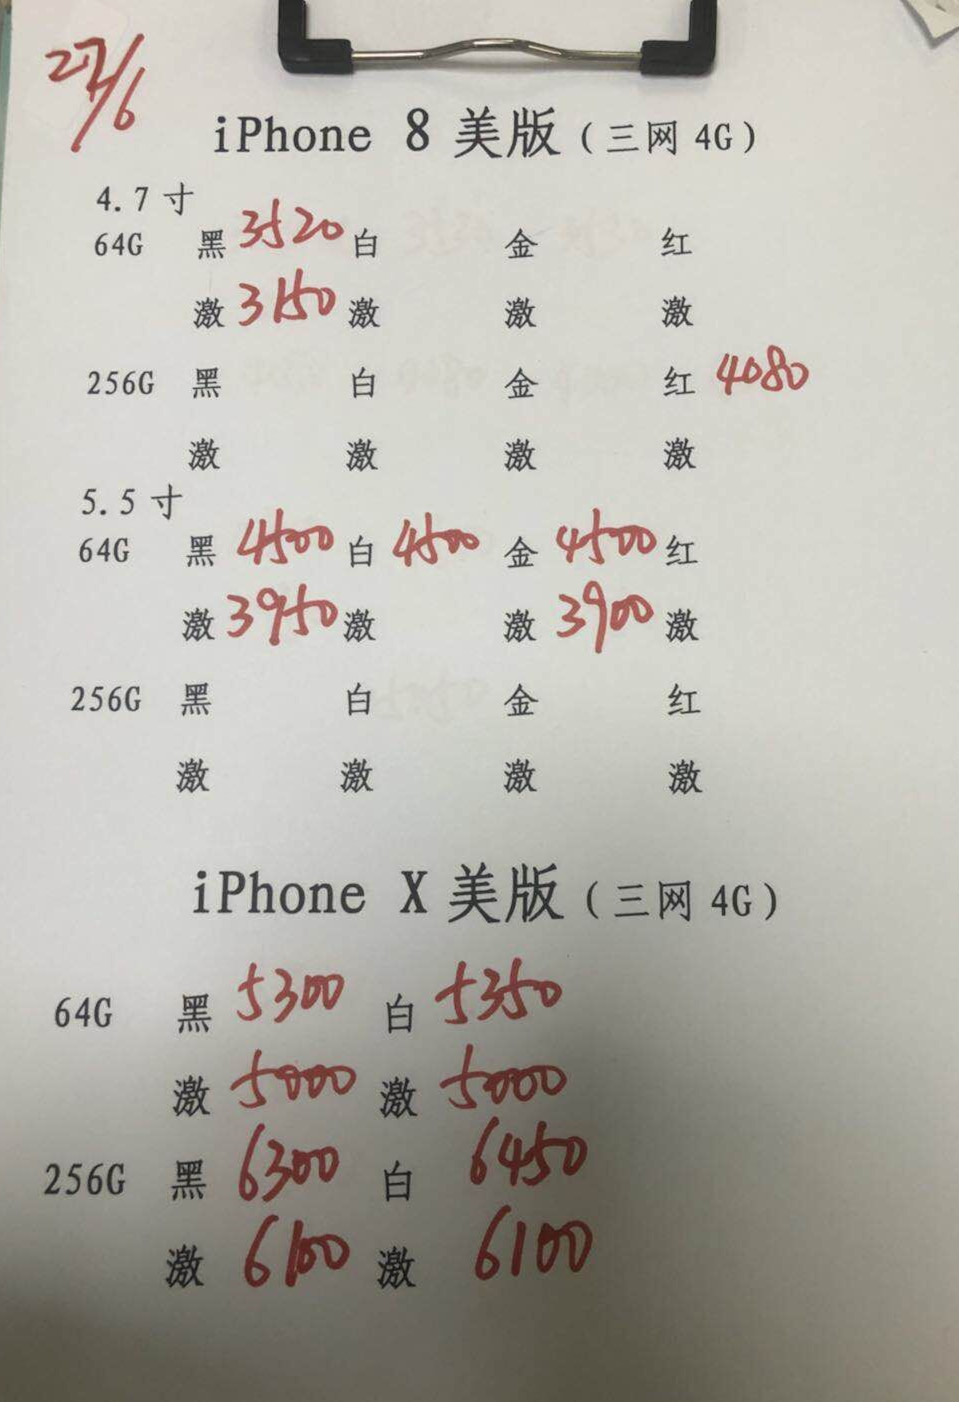 27/6
iPhone 8 美版（三网 4G）
4.7 寸
64G 黑 3520 白 金 红
激 3150 激 激 激
256G 黑 白 金 红 4080
激 激 激 激
5.5 寸
64G 黑 4500 白 4500 金 4500 红
激 3950 激 激 3900 激
256G 黑 白 金 红
激 激 激 激
iPhone X 美版（三网 4G）
64G 黑 5300 白 5350
激 5000 激 5000
256G 黑 6300 白 6450
激 6100 激 6100